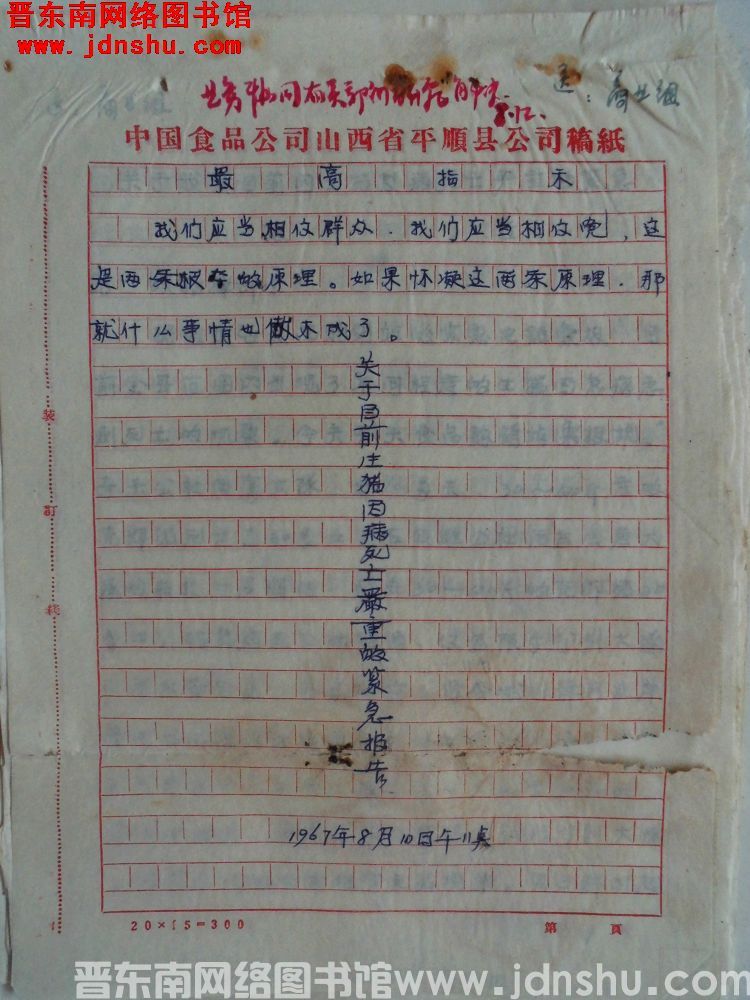 晋东南网络图书馆
www.jdnshu.com
送:商业组
8.12.
中国食品公司山西省平順县公司稿紙
最高指示
我们应当相信群众.我们应当相信党,这
是两条根本的原理。如果怀凝这两条原理.那
就什么事情也做不成了。
关于目前生猪因病死亡嚴重的紧急报告
1967年8月10日
装訂綫
20×15=300
第 頁
晋东南网络图书馆www.jdnshu.com